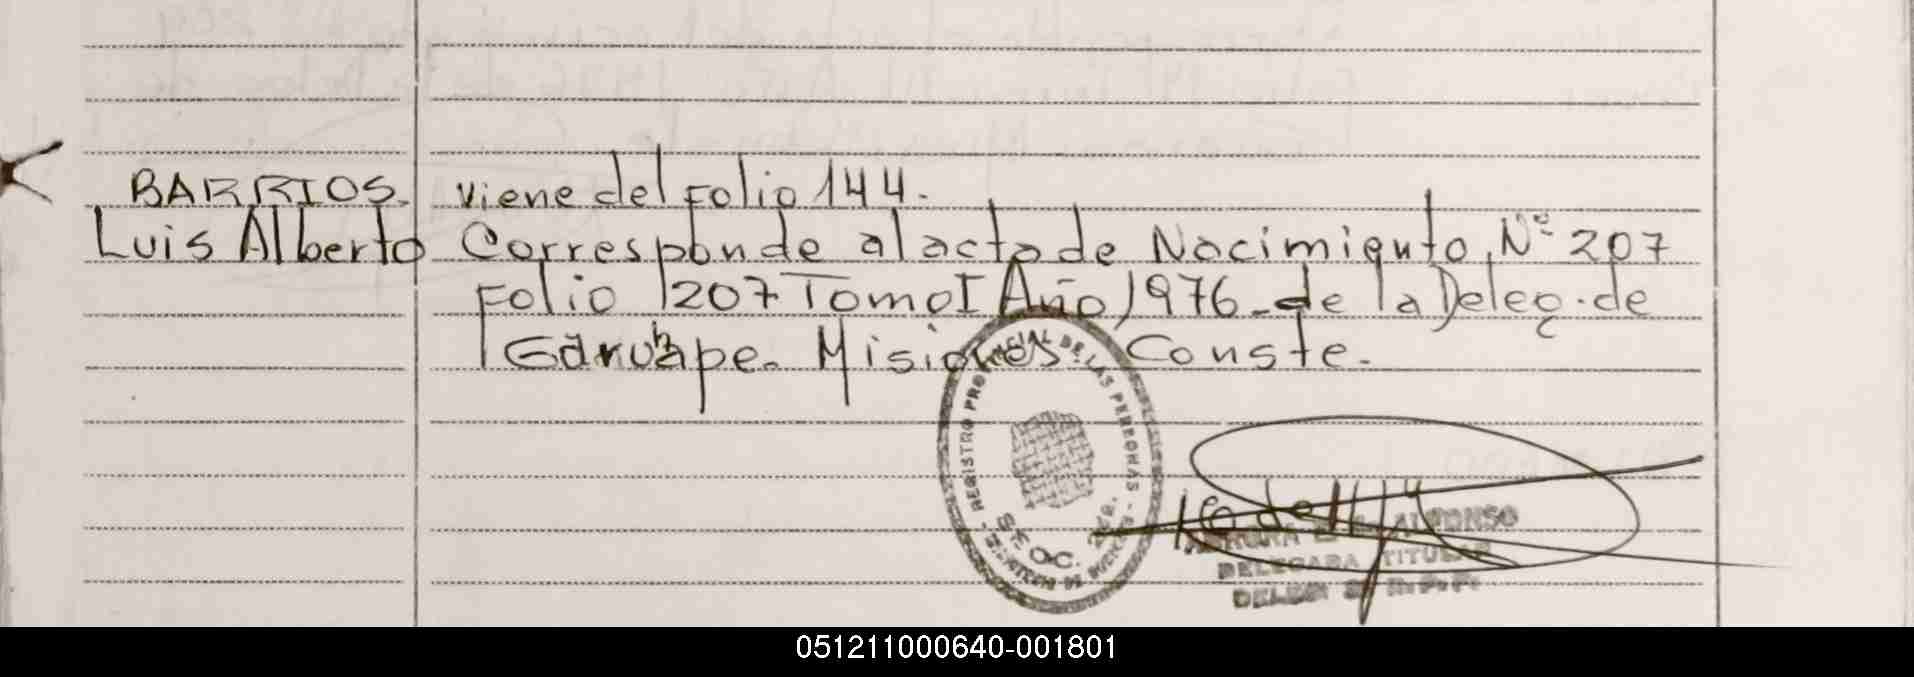 BARRIOS. viene del Folio 144.
Luis Alberto Corresponde al acta de Nacimiento, Nº 207
Folio 207 Tomo I Año 1976 - de la Deleg. de
Garuhape. Misiones. Conste.
REGISTRO PROVINCIAL DE LAS PERSONAS
ALFONSO
DELEGADA TITULAR
051211000640-001801